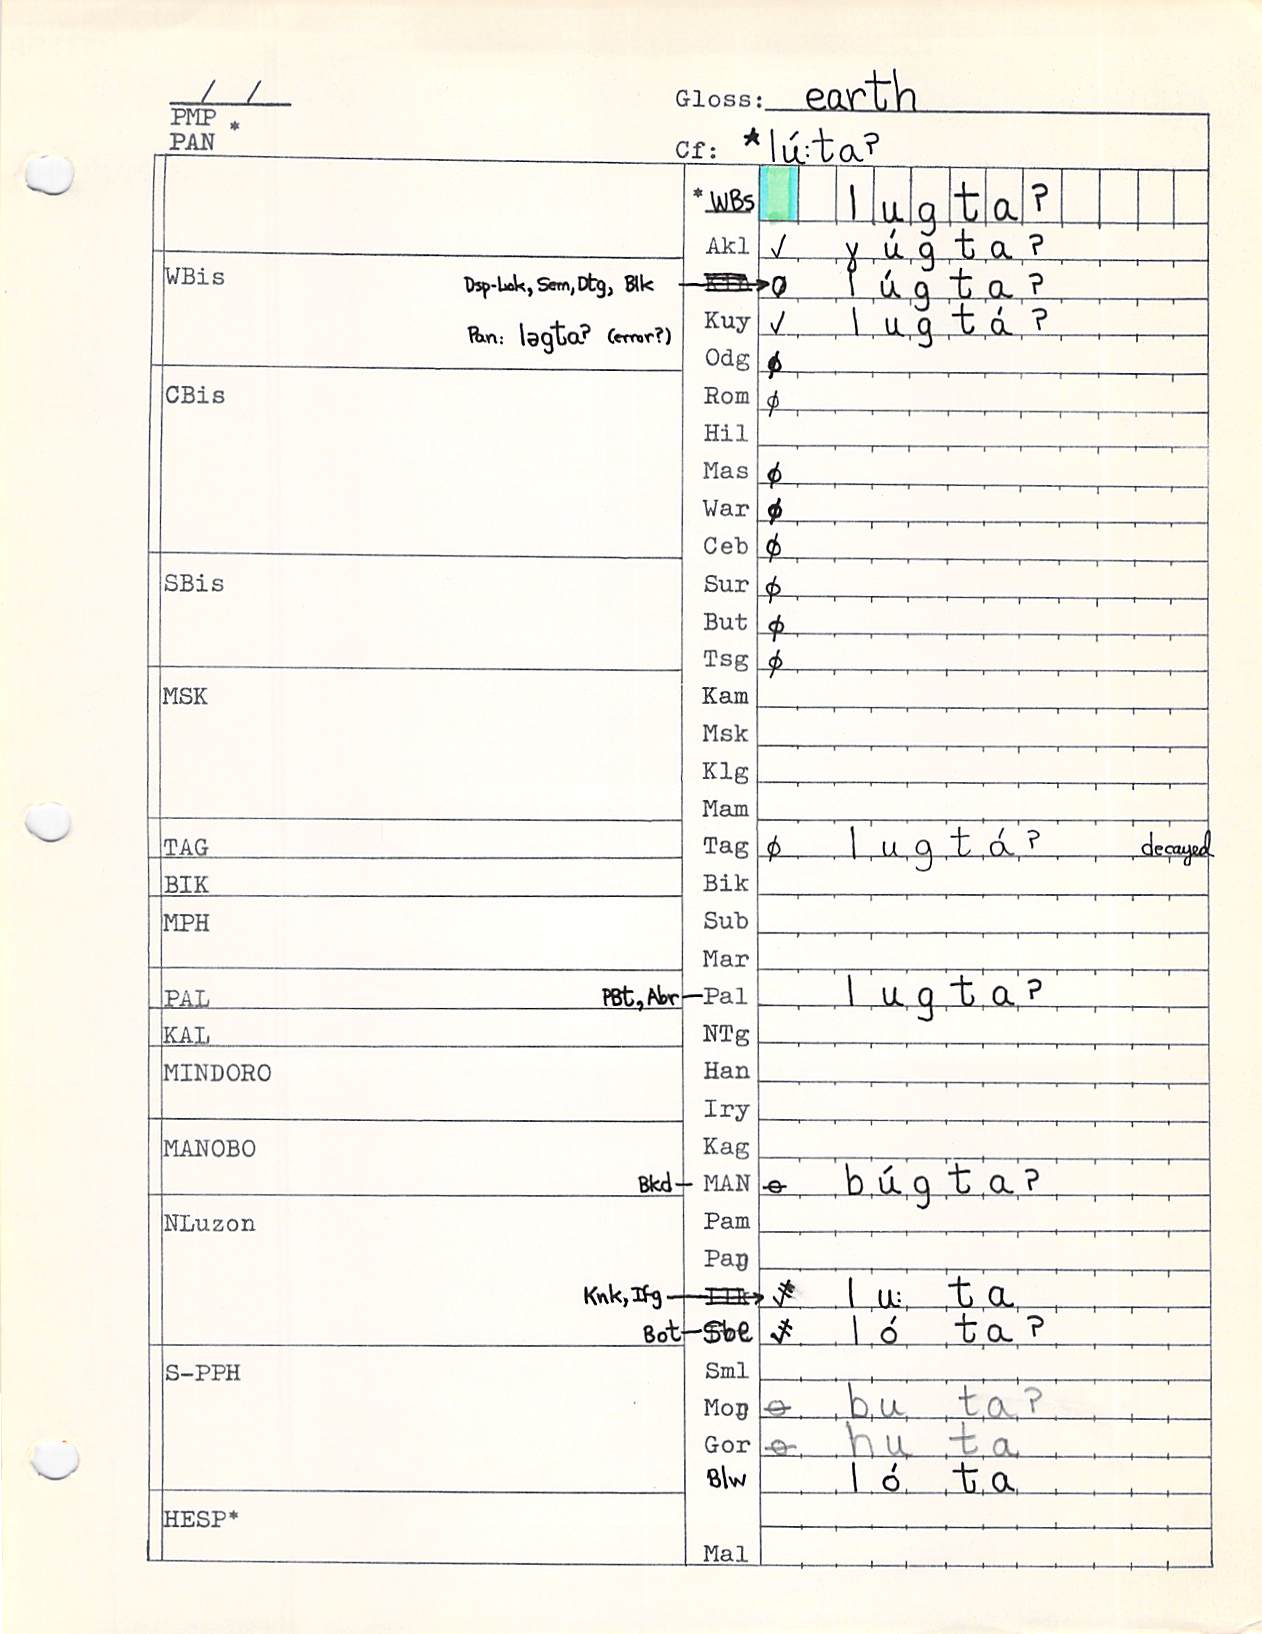 / /
PMP
PAN *
Gloss: earth
Cf: *lú:taʔ
*WBs lugtaʔ
Akl ✓ ɣúgtaʔ
WBis Dsp-Lok, Sem, Dtg, Blk → ø lúgtaʔ
Pan: ləgtaʔ (error?) Kuy ✓ lugtáʔ
Odg ø
CBis Rom ø
Hil
Mas ø
War ø
Ceb ø
SBis Sur ø
But ø
Tsg ø
MSK Kam
Msk
Klg
Mam
TAG Tag ø lugtáʔ decayed
BIK Bik
MPH Sub
Mar
PAL PBt, Abr — Pal lugtaʔ
KAL NTg
MINDORO Han
Iry
MANOBO Kag
Bkd — MAN ɵ búgtaʔ
NLuzon Pam
Paŋ
Knk, Ifg → lu: ta
Bot — Sbl ló taʔ
S-PPH Sml
Moŋ ɵ bu taʔ
Gor ɵ hu ta
Blw ló ta
HESP*
Mal